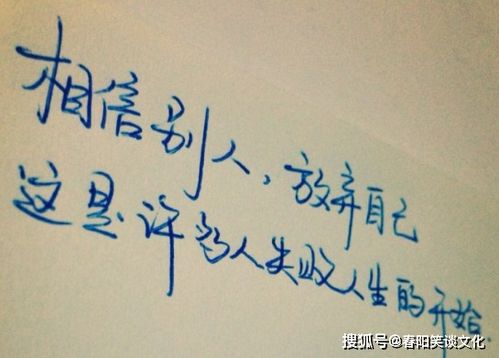 相信别人,放弃自己
这是许多人失败人生的开始
搜狐号@春阳笑谈文化